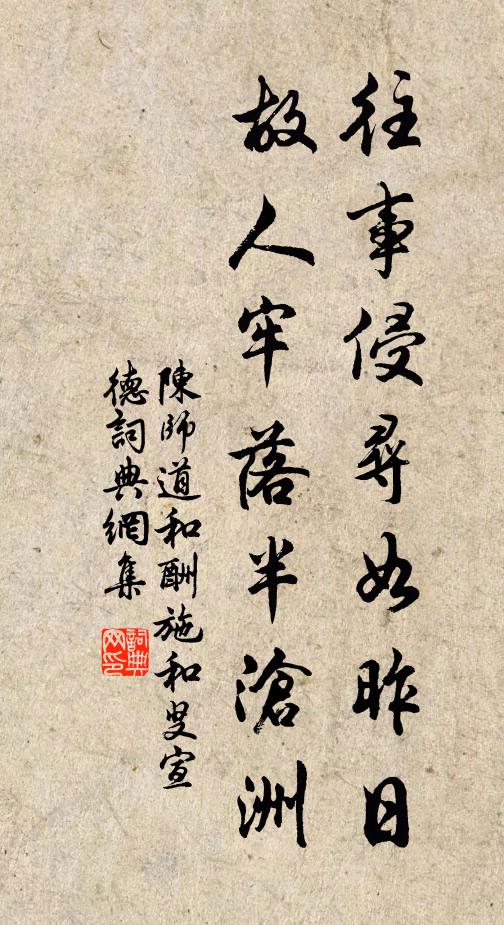 往事侵尋如昨日
故人牢落半滄洲
陳師道和酬施和叟宣
德詞典網集
詞典
网印